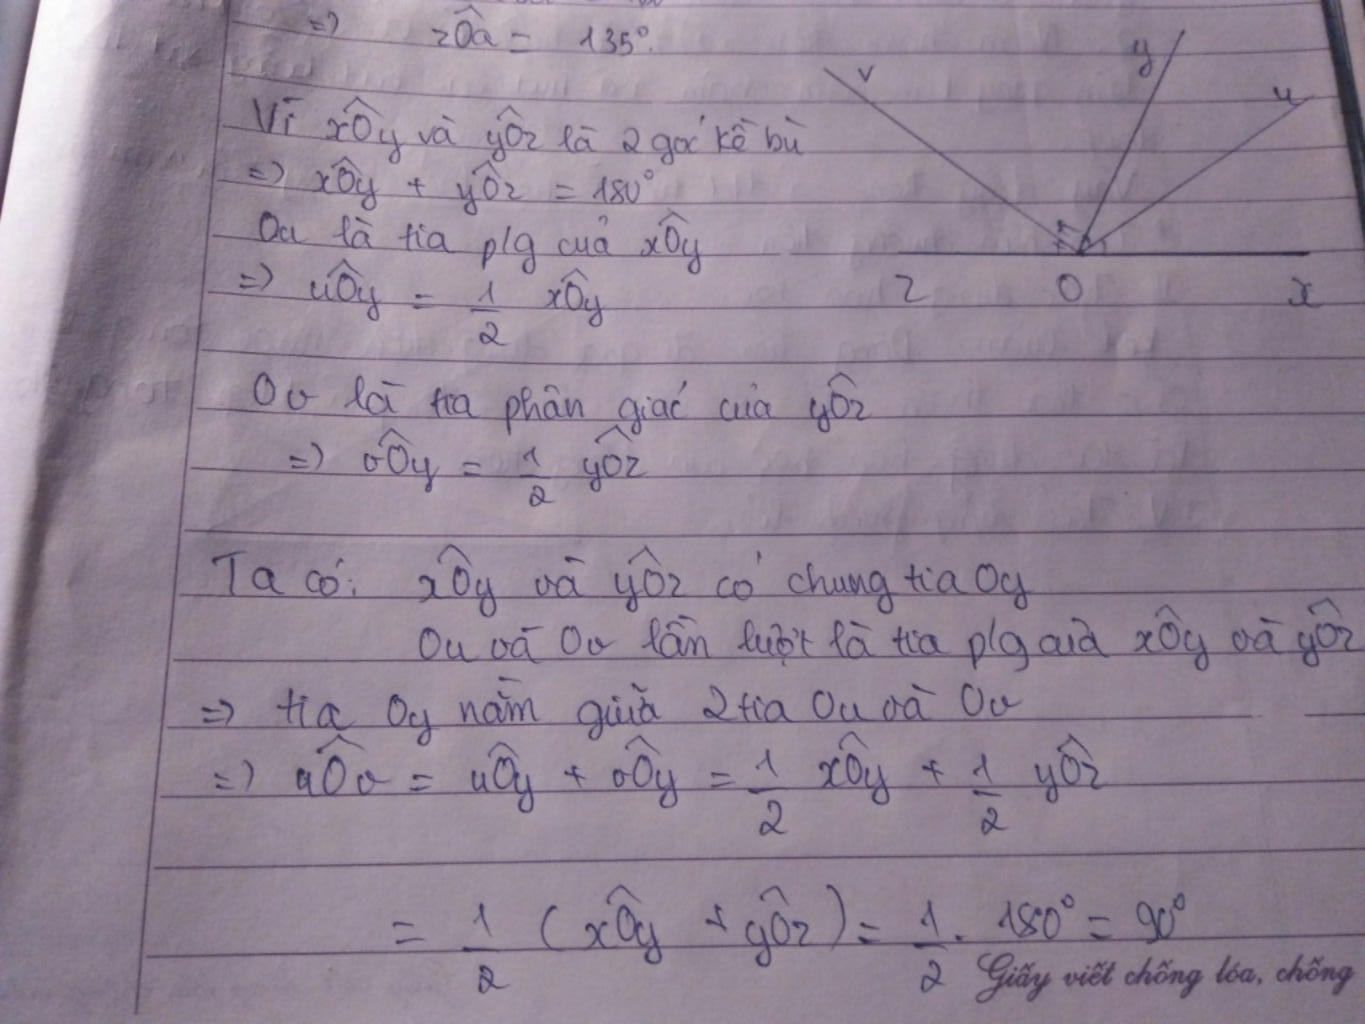 => zÔa = 135°.
Vì xÔy và yÔz là 2 góc kề bù
=> xÔy + yÔz = 180°
Ou là tia p/g của xÔy
=> uÔy = 1/2 xÔy
Ov là tia phân giác của yÔz
=> vÔy = 1/2 yÔz
v
y
u
z
O
x
Ta có: xÔy và yÔz có chung tia Oy
Ou và Ov lần lượt là tia p/g của xÔy và yÔz
=> tia Oy nằm giữa 2 tia Ou và Ov
=> uÔv = uÔy + vÔy = 1/2 xÔy + 1/2 yÔz
= 1/2 (xÔy + yÔz) = 1/2 . 180° = 90°
Giấy viết chống lóa, chống